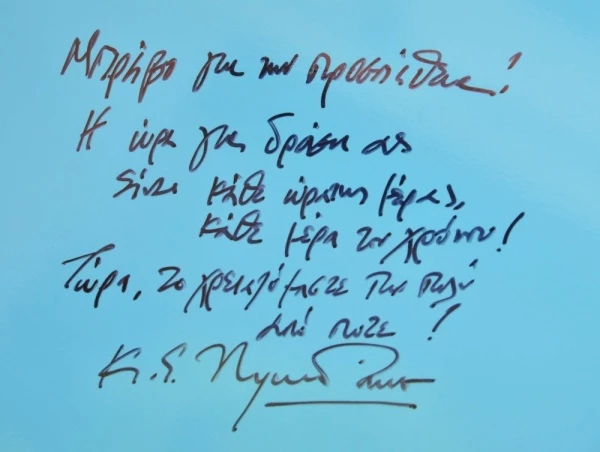 Μπράβο για την προσπάθεια!
Η ώρα για δράση ας
είναι κάθε ώρα της μέρας,
κάθε μέρα του χρόνου!
Τώρα, το χρειαζόμαστε πιο πολύ
από ποτέ!
Κ. Σ.